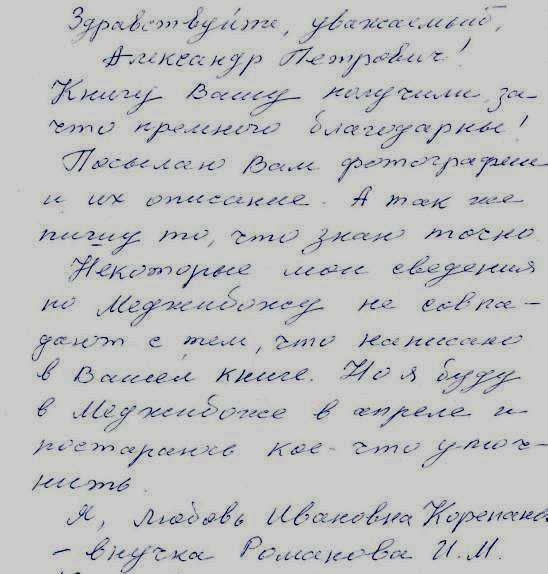 Здравствуйте, уважаемый,
Александр Петрович!
Книгу Вашу получили, за-
что премного благодарны!
Посылаю Вам фотографии
и их описание. А так же
пишу то, что знаю точно.
Некоторые мои сведения
по Меджибожу не совпа-
дают с тем, что написано
в Вашей книге. Но я буду
в Меджибоже в апреле и
постараюсь кое-что уточ-
нить.
Я, Любовь Ивановна Корепано
- внучка Романова И.М.